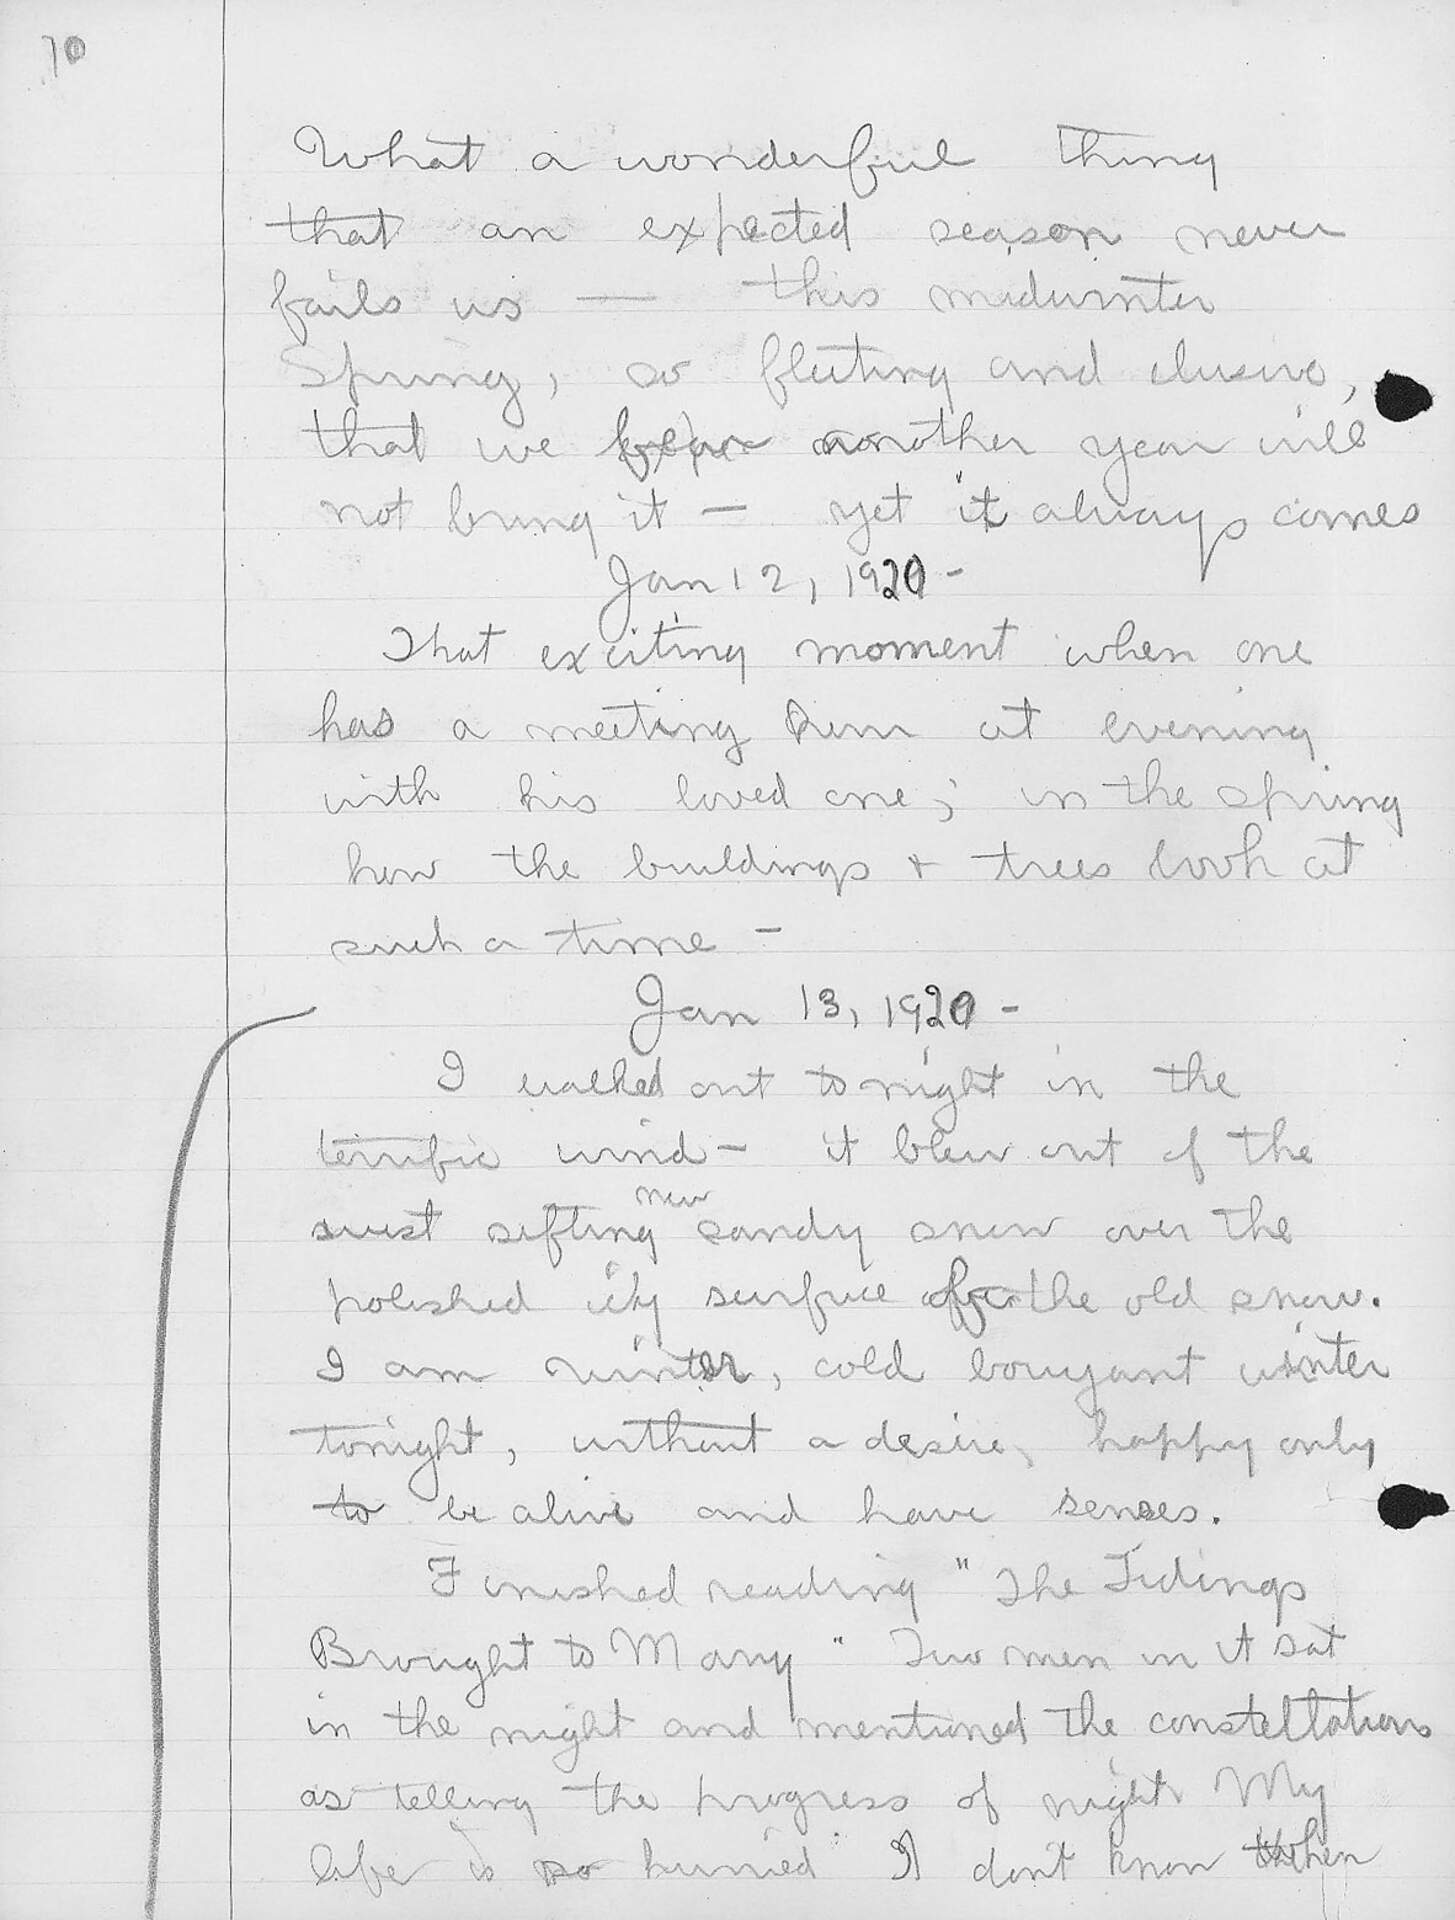 70
What a wonderful thing
that an expected season never
fails us — this midwinter
Spring, so fleeting and elusive,
that we fear another year will
not bring it — yet it always comes
Jan 12, 1920 -
That exciting moment when one
has a meeting him at evening
with his loved one; in the spring
how the buildings + trees look at
such a time -
Jan 13, 1920 -
I walked out tonight in the
terrific wind - it blew out of the
west sifting new sandy snow over the
polished icy surface of the old snow.
I am winter, cold bouyant winter
tonight, without a desire, happy only
to be alive and have senses.
Finished reading "The Tidings
Brought to Mary" Two men in it sat
in the night and mentioned the constellations
as telling the progress of night My
life is so hurried I don't know when